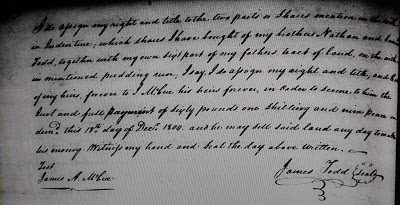 I do assign my right and title to the two parts or Shares mention in the with
in Indenture; which shares I have bought of my brothers Nathan and
Todd, together with my own sixt part of my fathers tract of land, in the with
in mentioned pudding run; I say, I do assign my right and title, and
of my heirs, forever to J. McGee his heirs forever, in order to secure to him the
Just and full payment of sixty pounds one Shilling and nine pence
this 18th day of Decr. 1800. and he may sell said land any day to make
his money Witness my hand and Seal the day above written.
Test
James A. McGee
James Todd Seal